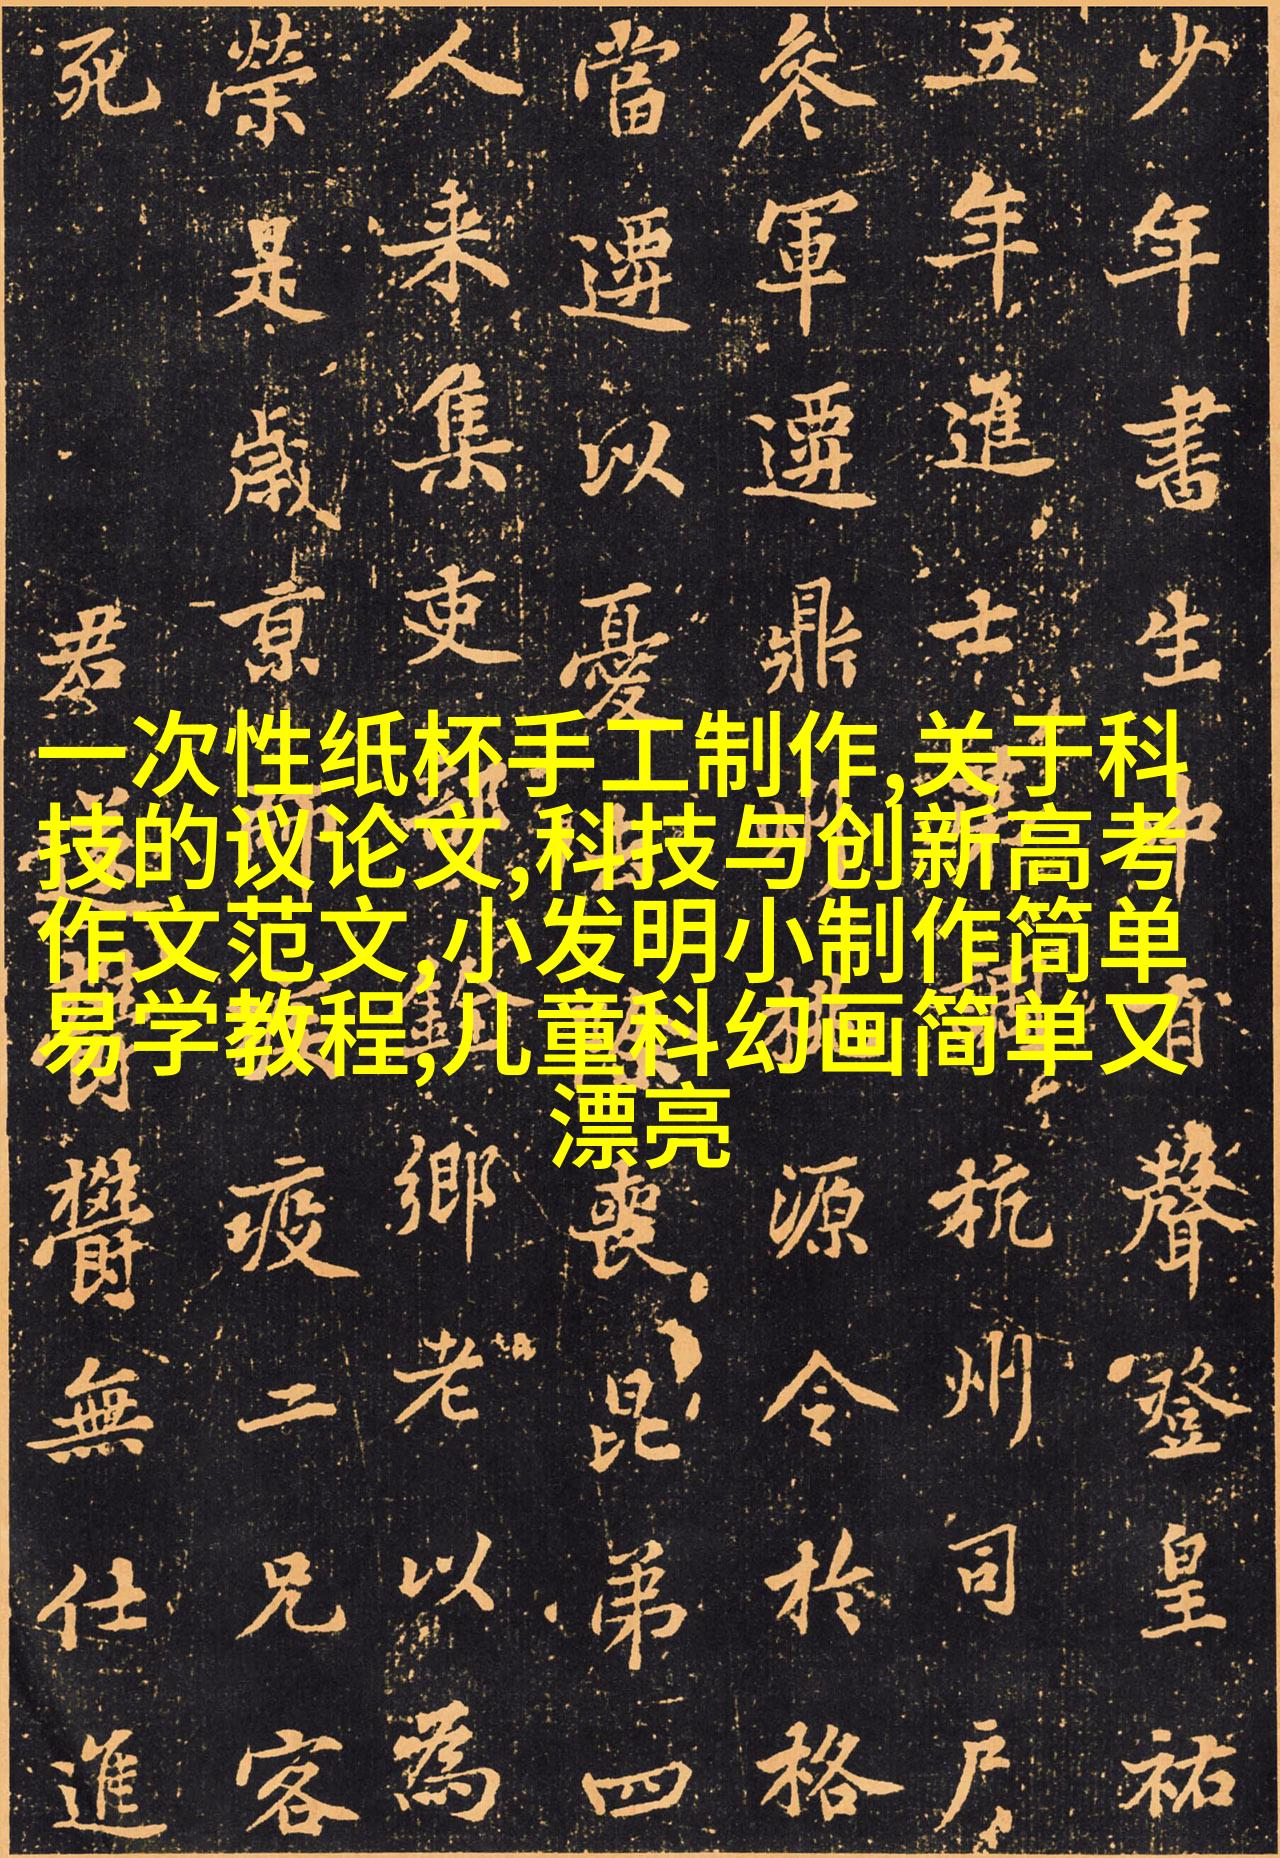 少年書生中有聲登皇祐
五年進士杭州司户
叅軍遷鼎州桃源令於格
當遷以憂喪昆弟四
人来集吏部銓鄉老以為
榮是歳京師疫二兄客
死君鬱無仕進
一次性纸杯手工制作,关于科
技的议论文,科技与创新高考
作文范文,小发明小制作简单
易学教程,儿童科幻画简单又
漂亮